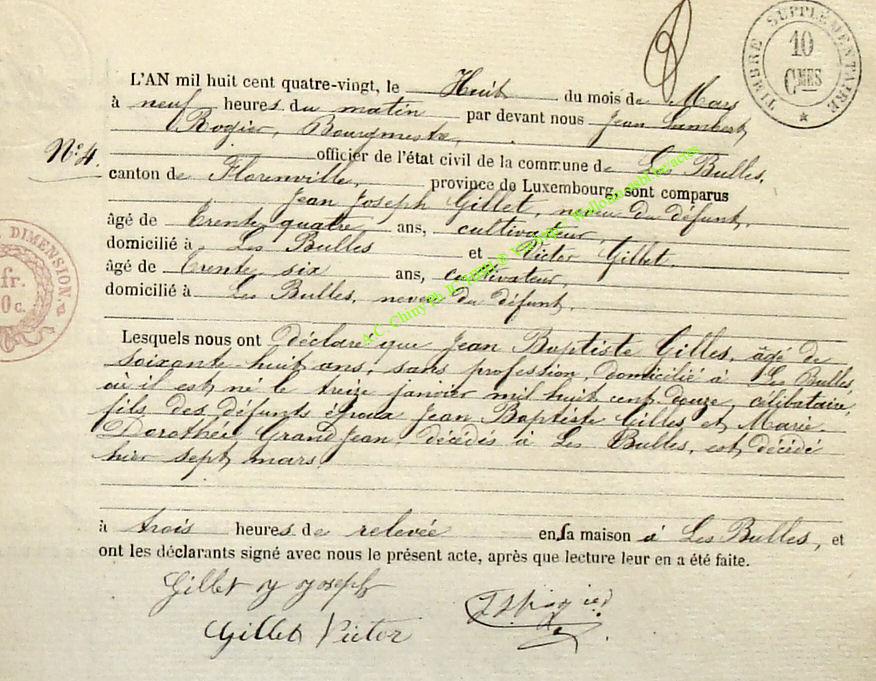 TIMBRE SUPPLÉMENTAIRE
10
CMES
L'AN mil huit cent quatre-vingt, le Huit du mois de Mars
à neuf heures du matin par devant nous Jean Lambert
Rogier, Bourgmestre,
N° 4. officier de l'état civil de la commune de Les Bulles,
canton de Florenville, province de Luxembourg, sont comparus
Jean Joseph Gillet, neveu du défunt,
âgé de trente quatre ans, cultivateur,
domicilié à Les Bulles et Victor Gillet
âgé de trente six ans, cultivateur,
domicilié à Les Bulles, neveu du défunt.
DIMENSION
fr.
0 c.
Lesquels nous ont déclaré que Jean Baptiste Gilles, âgé de
soixante huit ans, sans profession, domicilié à Les Bulles
où il est né le treize janvier mil huit cent douze, célibataire,
fils des défunts époux Jean Baptiste Gilles et Marie
Dorothée GrandJean, décédés à Les Bulles, est décédé
hier sept mars
à trois heures de relevée en sa maison à Les Bulles, et
ont les déclarants signé avec nous le présent acte, après que lecture leur en a été faite.
Gillet J Joseph
Gillet Victor